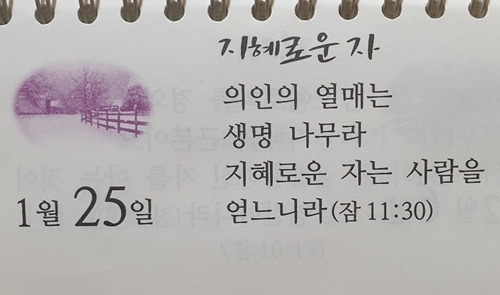 지혜로운 자
의인의 열매는
생명 나무라
지혜로운 자는 사람을
얻느니라(잠 11:30)
1월 25일